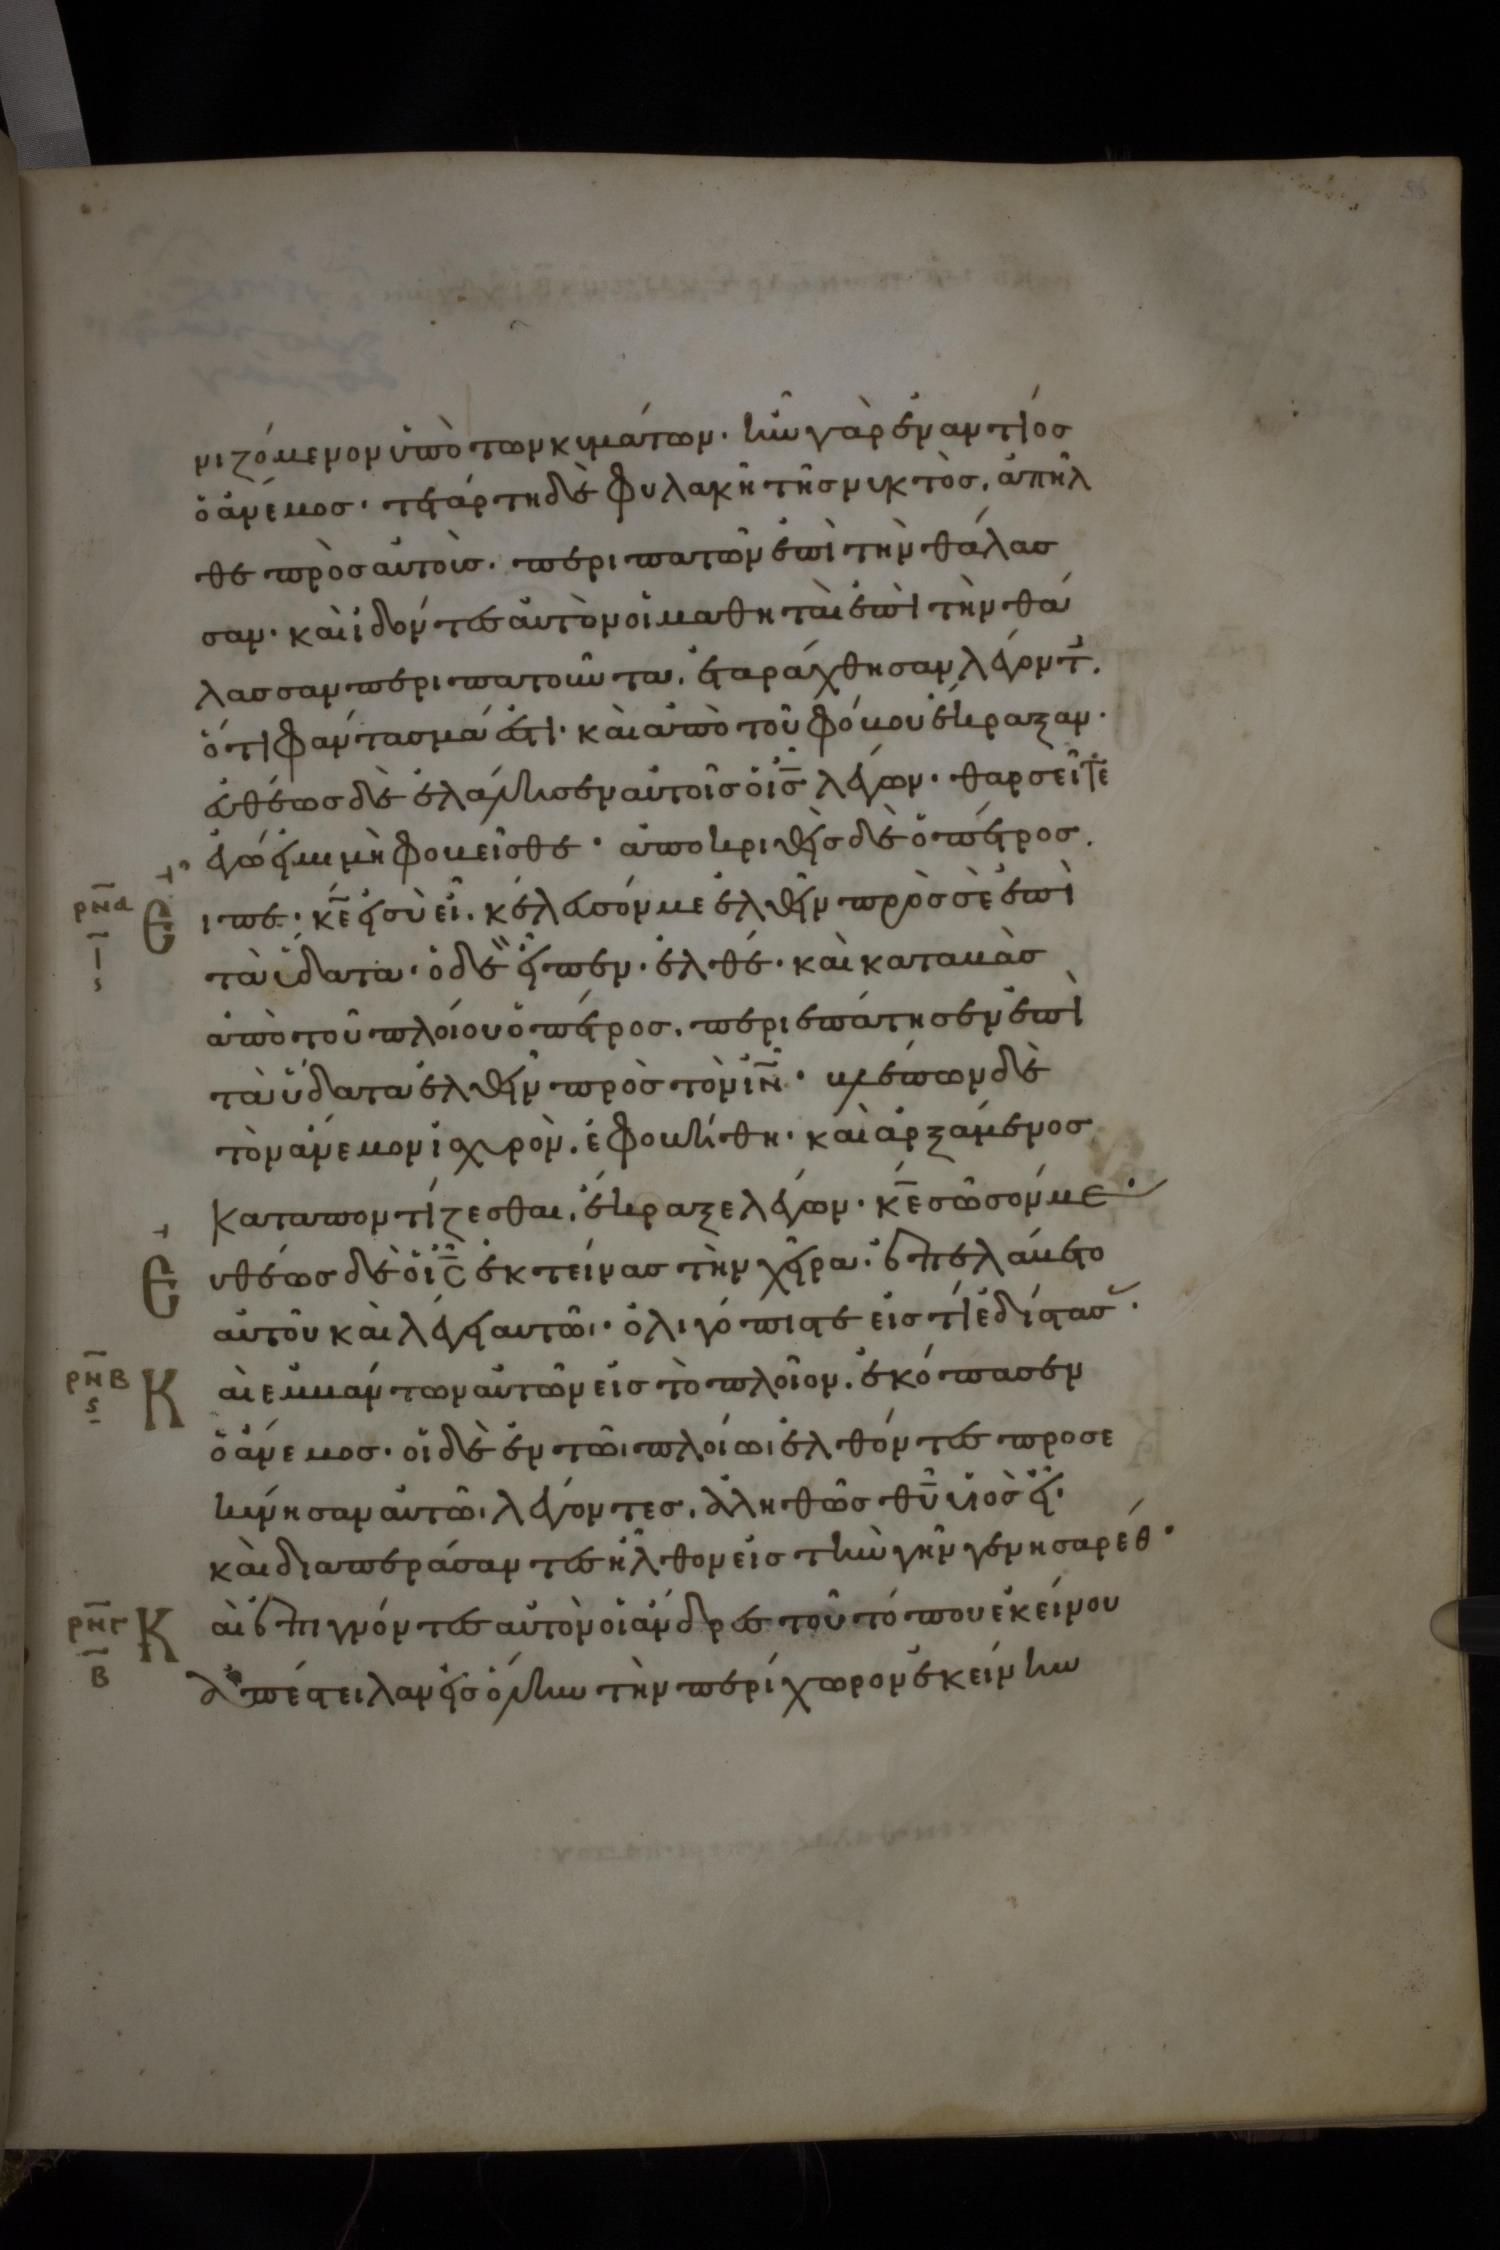 νιζόμενον ὑπὸ των κυμάτων· ἦν γὰρ ἐναντίος
ὁ ἄνεμος· τετάρτη δὲ φυλακῆ τῆς νυκτὸς. ἀπῆλ
θε πρὸς αὐτοὺς. περιπατῶν ἐπὶ τὴν θάλασ
σαν· καὶ ἰδόντες αὐτὸν οἱ μαθηταὶ ἐπὶ τὴν θά
λασσαν περιπατοῦντα. ἐταράχθησαν λέγοντ̅.
ὅτι φάντασμά ἐστι· καὶ ἀπὸ τοῦ φόβου ἔκραξαν·
εὐθέως δὲ ἐλάλησεν αὐτοῖς ὁ ι̅ς̅ λέγων· θαρσεῖτε
ἐγώ εἰμι μὴ φοβεῖσθε· ἀποκριθεὶς δὲ ὁ πέτρος.
ρ̅ν̅α̅ ι̅ ς
Ε ιπε· κ̅ε̅ εἰ σὺ εἶ. κέλευσόν με ἐλθεῖν πρὸς σὲ ἐπὶ
τὰ ὕδατα· ὁ δὲ εἶπεν· ἐλθέ· καὶ καταβὰς
ἀπὸ τοῦ πλοίου ὁ πέτρος. περιεπάτησεν ἐπὶ
τὰ ὕδατα ἐλθεῖν πρὸς τὸν ι̅ν̅· βλέπων δὲ
τὸν ἄνεμον ἰσχυρὸν. ἐφοβήθη· καὶ ἀρξάμενος
καταποντίζεσθαι. ἔκραξε λέγων· κ̅ε̅ σῶσόν με·
Ε υθέως δὲ ὁ ι̅ς̅ ἐκτείνας τὴν χεῖρα. ἐπελάβετο
αὐτοῦ καὶ λέγει αυτῶι· ὀλιγόπιστε εἰς τί ἐδίστασ·
ρ̅ν̅β̅ ς
Κ αὶ ἐμβάντων αὐτῶν εἰς τὸ πλοῖον. ἐκόπασεν
ὁ ἄνεμος· οἱ δὲ ἐν τῶι πλοίωι ἐλθόντες προσε
κύνησαν αὐτῶι λέγοντες. ἀληθῶς θ̅υ̅ υἱὸς εἶ·
καὶ διαπεράσαντες ἦλθον εἰς τὴν γῆν γενησαρέθ·
ρ̅ν̅γ̅ β̅
Κ αὶ ἐπιγνόντες αὐτὸν οἱ άνδρες τοῦ τόπου ἐκείνου
ἀπέστειλαν εἰς ὅλην τὴν περίχωρον ἐκείνην